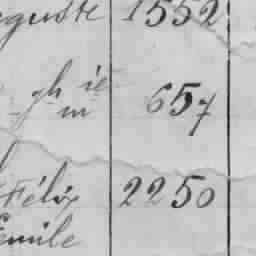 guste 1552
gh ie 657
m
Félix 2250
Emile